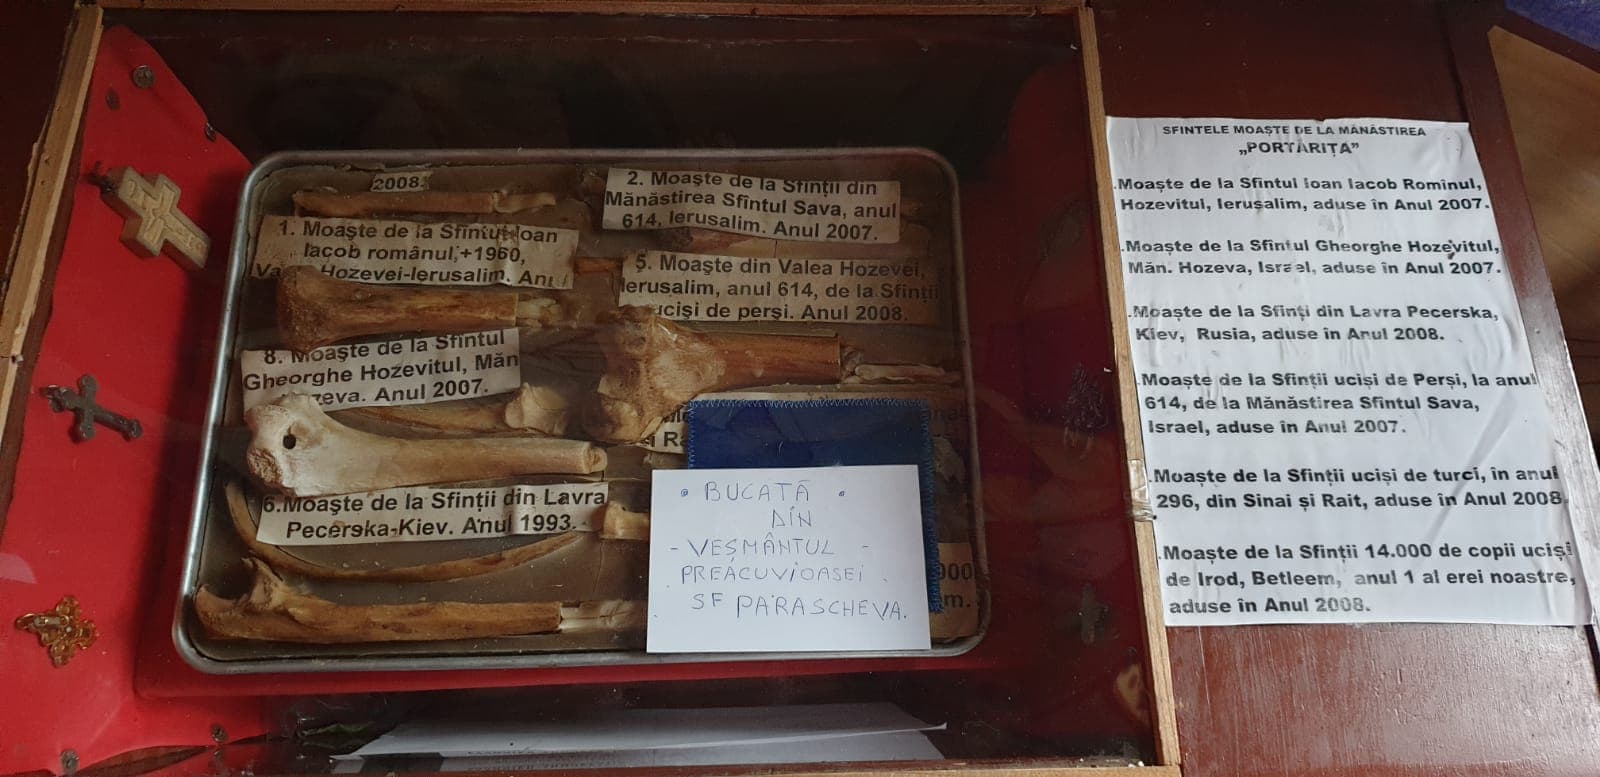 2008.
1. Moaşte de la Sfîntul Ioan
Iacob românul,+1960,
Hozevei-Ierusalim.
2. Moaşte de la Sfinţii din
Mănăstirea Sfîntul Sava, anul
614, Ierusalim. Anul 2007.
5. Moaşte din Valea Hozevei,
Ierusalim, anul 614, de la Sfinţii
ucişi de perşi. Anul 2008.
8. Moaşte de la Sfîntul
Gheorghe Hozevitul, Măn
Anul 2007.
6.Moaşte de la Sfinţii din Lavra
Pecerska-Kiev. Anul 1993.
• BUCATĂ •
DIN
- VEȘMÂNTUL -
PREACUVIOASEI
SF PARASCHEVA.
SFINTELE MOAŞTE DE LA MĂNĂSTIREA
„PORTĂRIȚA”
.Moaşte de la Sfîntul Ioan Iacob Romînul,
Hozevitul, Ierusalim, aduse în Anul 2007.
.Moaşte de la Sfîntul Gheorghe Hozevitul,
Măn. Hozeva, Israel, aduse în Anul 2007.
.Moaşte de la Sfinţi din Lavra Pecerska,
Kiev, Rusia, aduse în Anul 2008.
.Moaşte de la Sfinţii ucişi de Perşi, la anul
614, de la Mănăstirea Sfîntul Sava,
Israel, aduse în Anul 2007.
.Moaşte de la Sfinţii ucişi de turci, în anul
296, din Sinai şi Rait, aduse în Anul 2008.
.Moaşte de la Sfinţii 14.000 de copii ucişi
de Irod, Betleem, anul 1 al erei noastre,
aduse în Anul 2008.